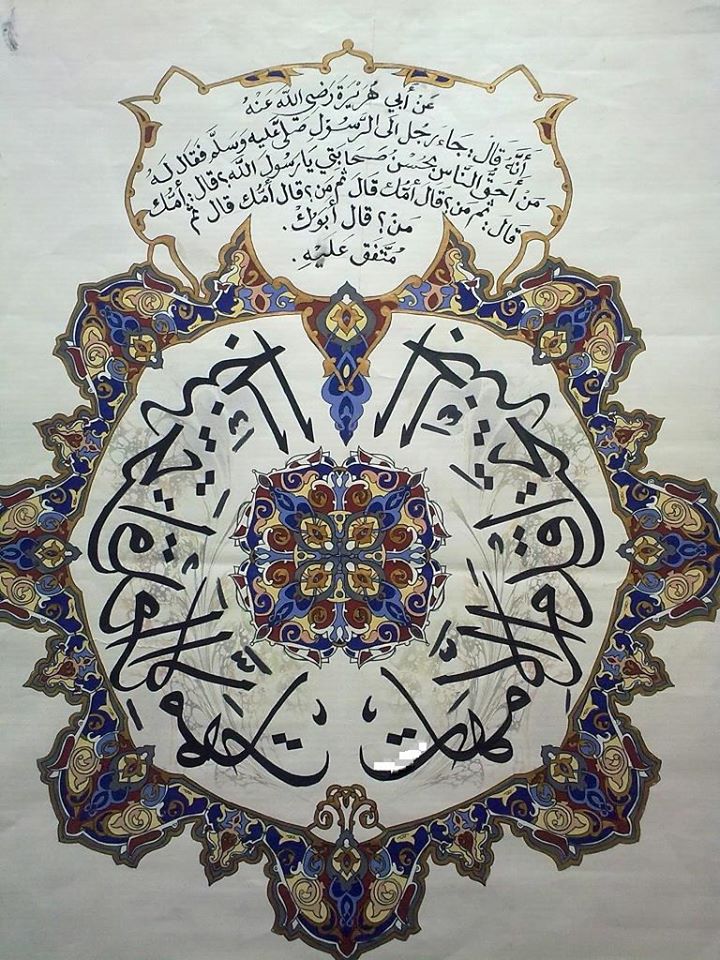 عَن أَبي هُرَيْرَةَ رَضِي اللَّه عَنْهُ
أَنَّهُ قَالَ: جَاءَ رَجُل الَى الرَّسُوْل صَلى عَليه وَسَلَّم فَقَال لَهُ
مَن أَحَقُّ النَّاس بِحُسْن صَحَابَتي يَا رَسُول اللَّه؟ قَال: أُمُّك
قَالَ: ثم مَن؟ قَال أُمُّك قَالَ ثم مَن؟ قال أُمُّك قال ثم
مَنْ؟ قال أَبُوكْ.
مُتَّفق عَليْهِ.
الجنة تحت أقدام الأمهات